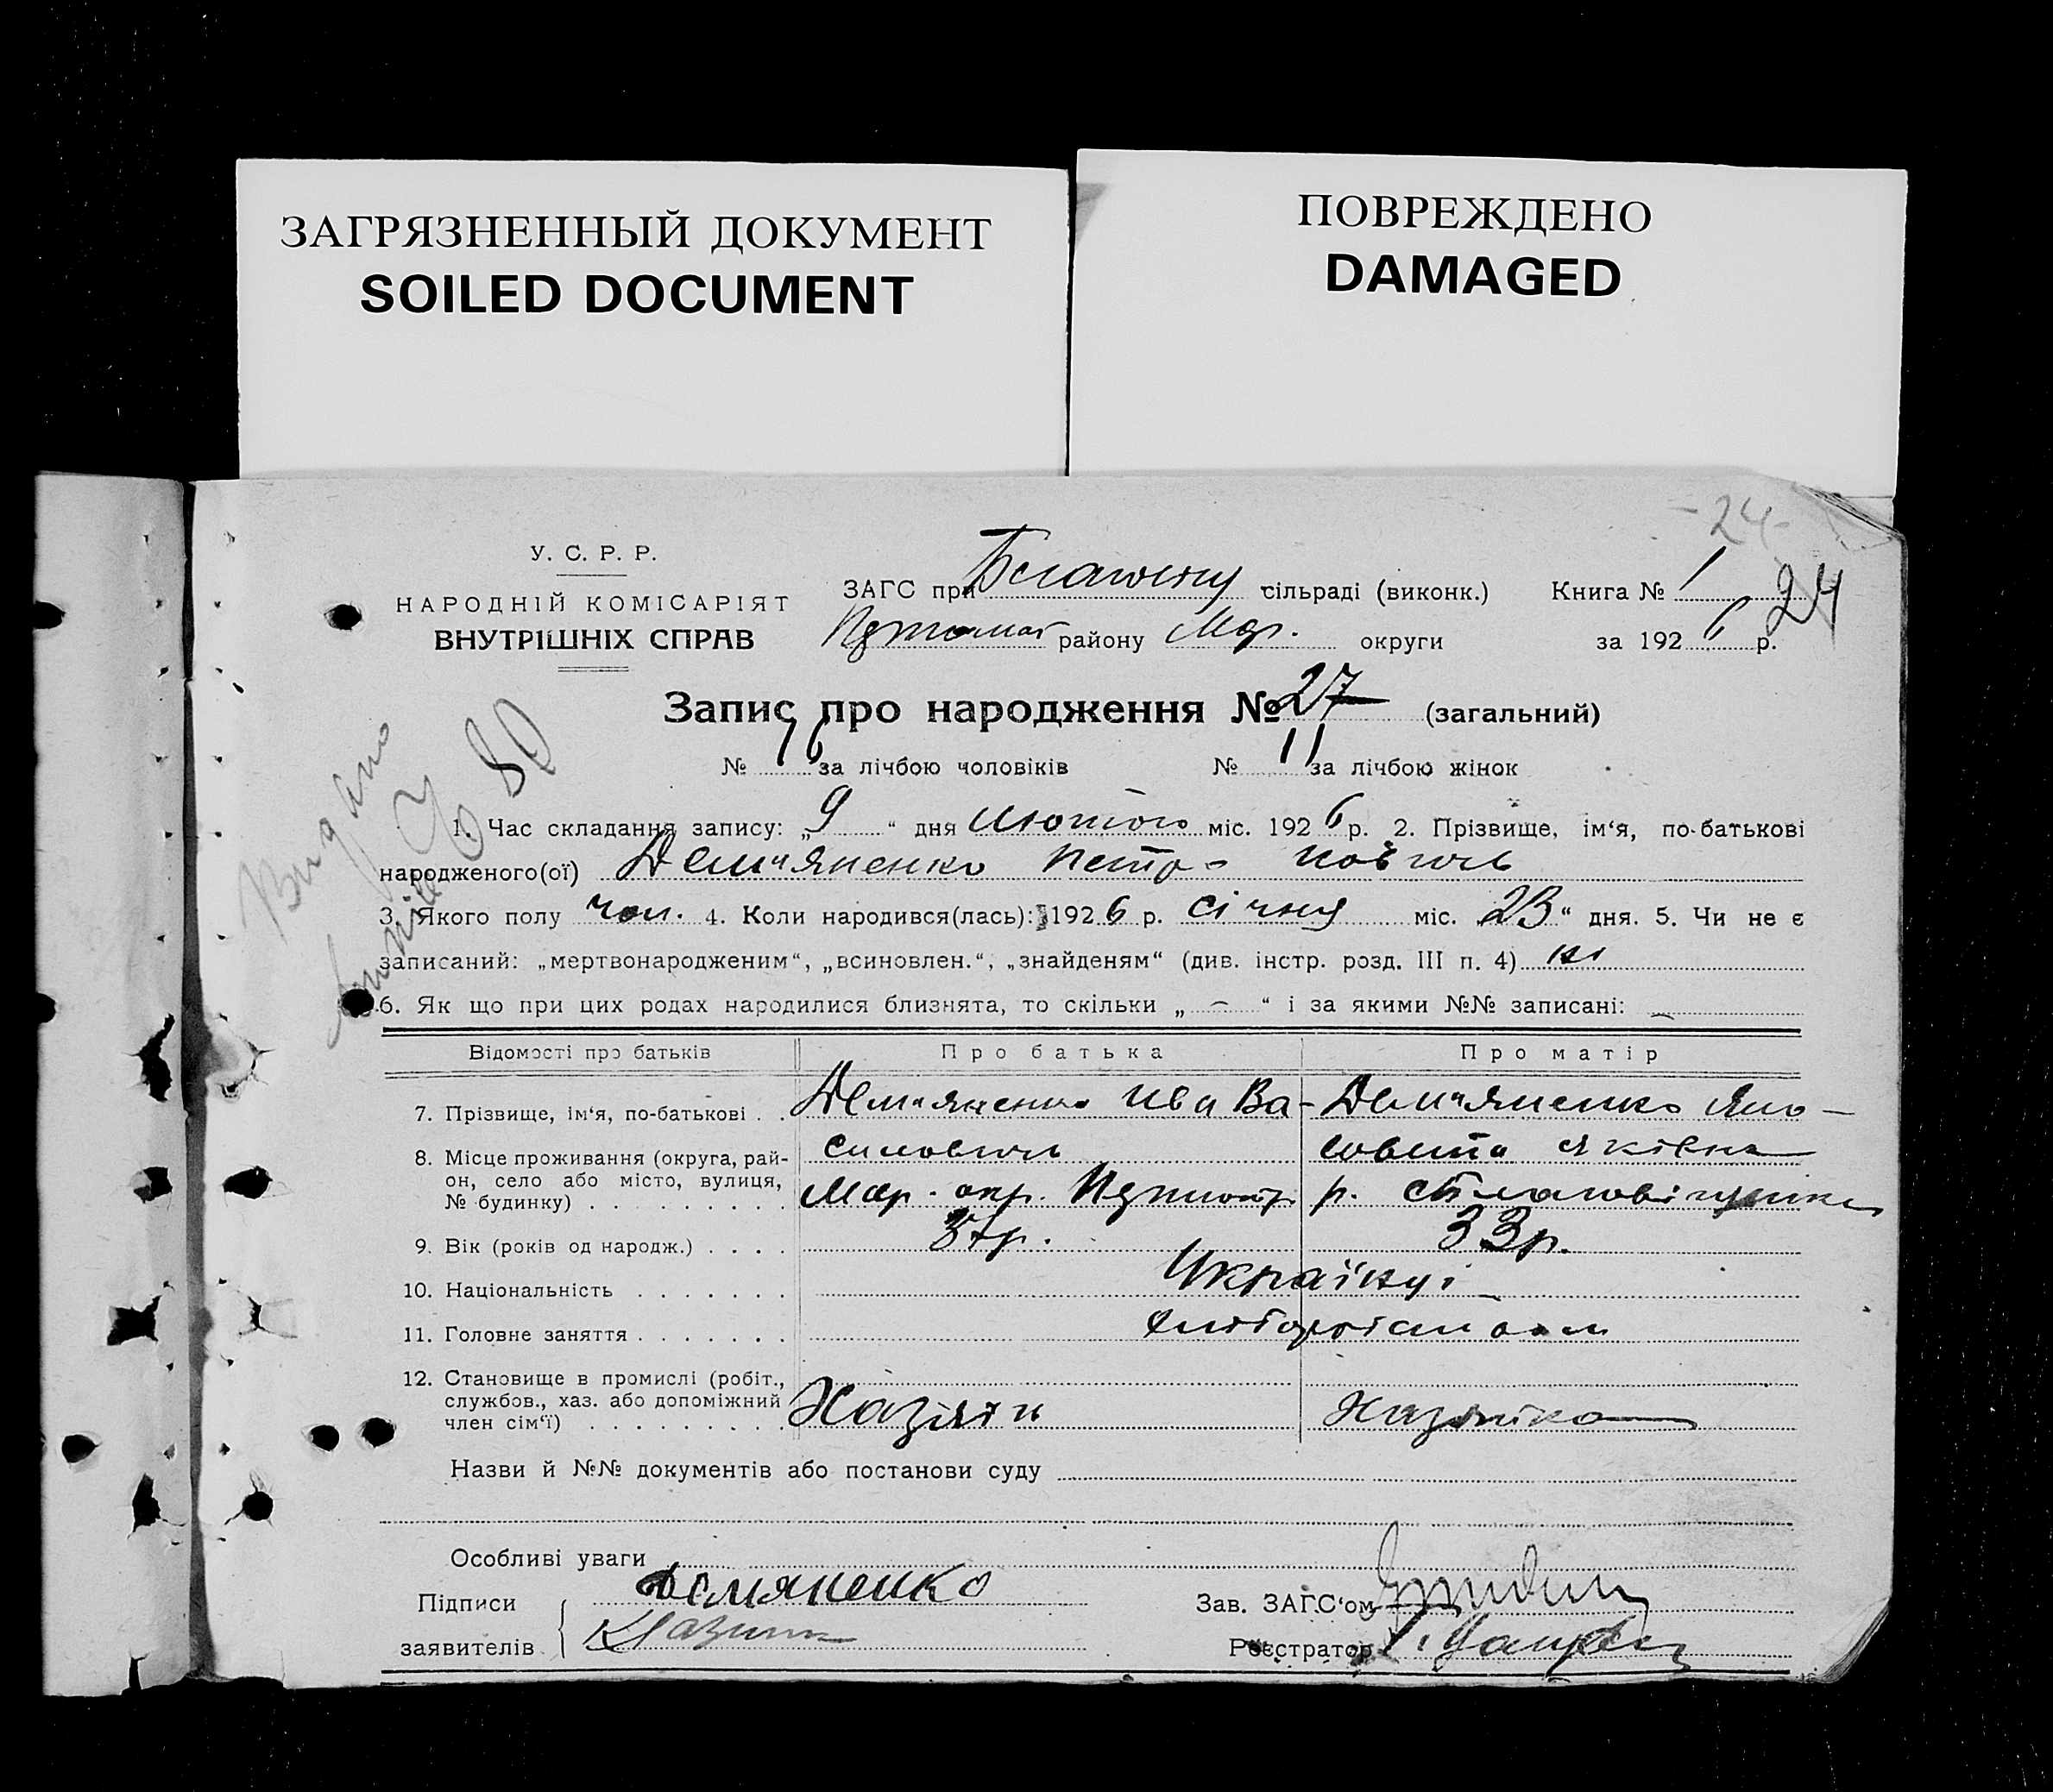 ЗАГРЯЗНЕННЫЙ ДОКУМЕНТ
SOILED DOCUMENT
ПОВРЕЖДЕНО
DAMAGED
-24-
24
У. С. Р. Р.
НАРОДНІЙ КОМІСАРІЯТ
ВНУТРІШНІХ СПРАВ
ЗАГС при сільраді (виконк.) Книга № 1
району Мар. округи за 1926 р.
Запис про народження № 27 (загальний)
№ 16 за лічбою чоловіків № 11 за лічбою жінок
1. Час складання запису: „9“ дня Лютого міс. 1926 р. 2. Прізвище, ім‘я, по-батькові
народженого(ої) Дем‘яненко Петро Ів
3. Якого полу чол. 4. Коли народився(лась): 1926 р. Січня міс. 23“ дня. 5. Чи не є
записаний: „мертвонародженим“, „всиновлен.“, „знайденям“ (див. інстр. розд. III п. 4) ні
6. Як що при цих родах народилися близнята, то скільки „ — “ і за якими №№ записані: —
Відомості про батьків Про батька Про матір
7. Прізвище, ім‘я, по-батькові . . Дем‘яненко Ива Ва- Дем‘яненко
силович Яківна
8. Місце проживання (округа, рай-
он, село або місто, вулиця,
№ будинку) . . . . . . . . . Мар. окр.
9. Вік (років од народж.) . . . . 37р. 33р.
10. Національність . . . . . . . Українці
11. Головне заняття . . . . . . .
12. Становище в промислі (робіт.,
службов., хаз. або допоміжний
член сім‘ї) . . . . . . . . . Хазяїн Хазяйка
Назви й №№ документів або постанови суду
Особливі уваги
Підписи Демяненко
заявителів
Зав. ЗАГС‘ом
Реєстратор
Видано
80